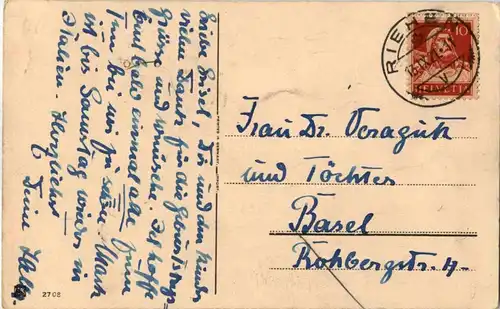 Liebe Gritel, Dir und den Kindern
vielen Dank für die Geburtstags-
grüsse und wünsche. Ich hoffe
Euch bald einmal alle Drei
bei mir zu sehen.
ist bis Samstag wieder in
Italien. Herzlichst
Deine
2708
RIEHEN
10
HELVETIA
Frau Dr. Veraguth
und Töchter
Basel
Röhbergstr. 4.